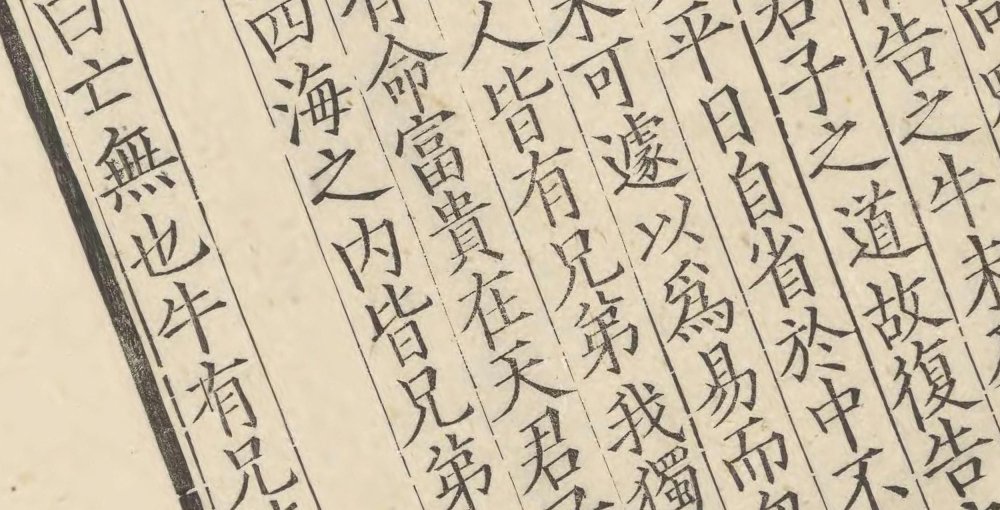 告之牛未
君子之道故復告
平日自省於中不
未可遽以爲易而
人皆有兄弟我獨
有命富貴在天君子
四海之内皆兄弟
曰亡無也牛有兄